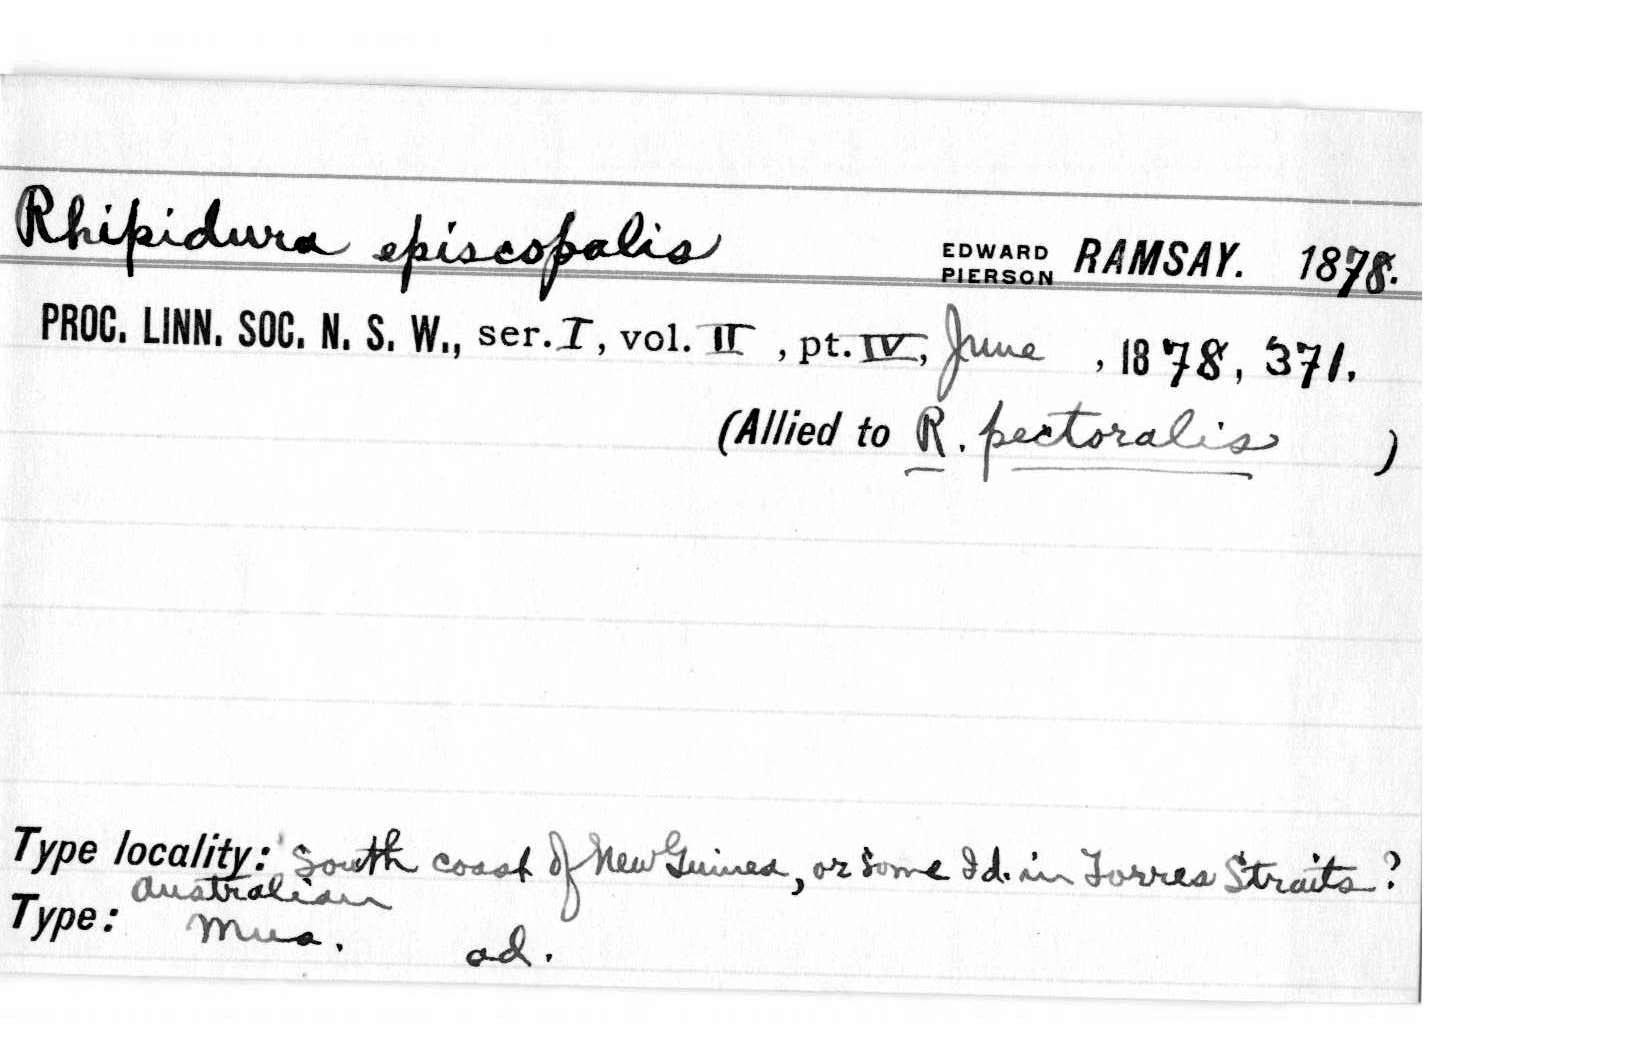 Rhipidura episcopalis EDWARD PIERSON RAMSAY. 1878.
PROC. LINN. SOC. N. S. W., ser. I, vol. II, pt. IV, June, 1878, 371.
(Allied to R. pectoralis )
Type locality: South coast of New Guinea, or some Id. in Torres Straits?
Type: Australian Mus. ad.